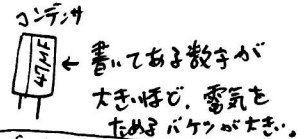 コンデンサ
47μF
← 書いてある数字が
大きいほど、電気を
ためるバケツが大きい。